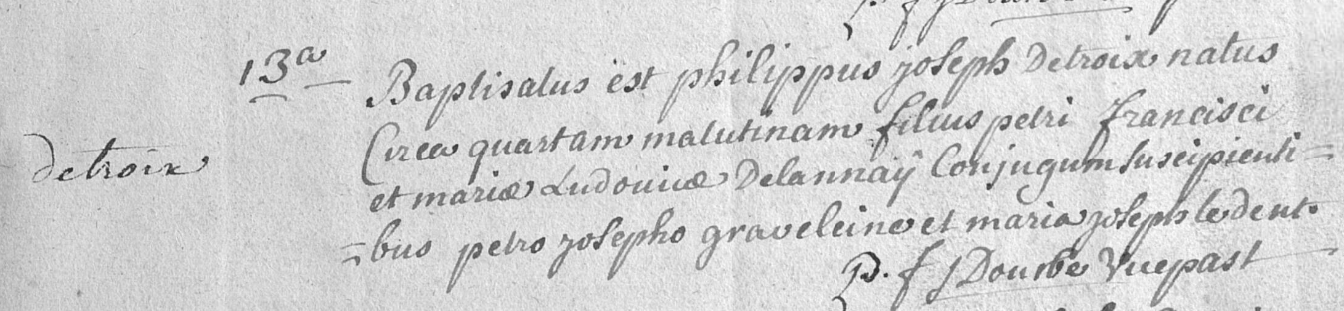 13a Baptisatus est philippus joseph Detroix natus
detroix
Circa quartam matutinam filius petri francisci
et mariæ Ludovicæ Delannaÿ Conjugum suscipienti=
=bus petro josepho graveleine et maria joseph ledent.
p. f j Dourbe Vicepast